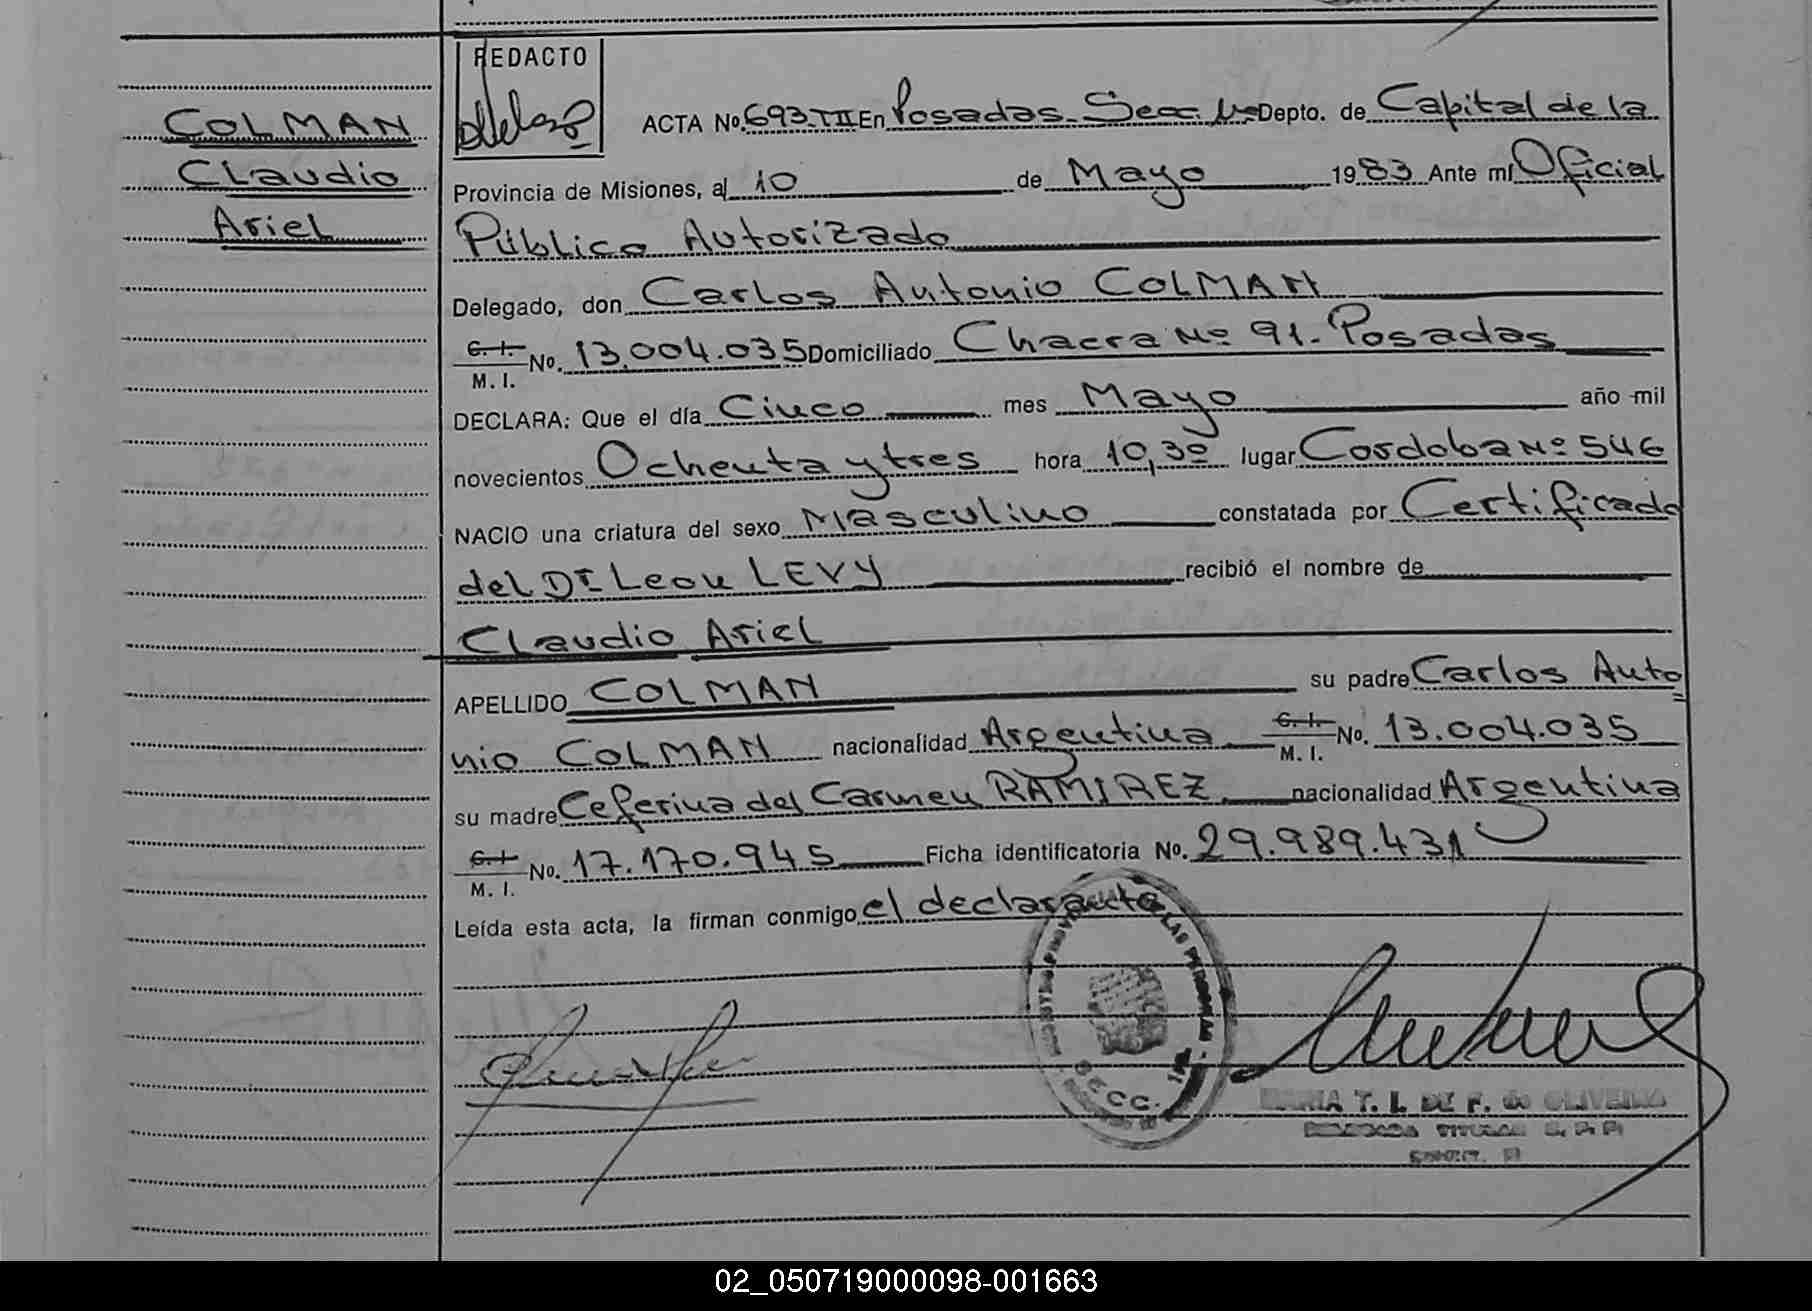 REDACTO
COLMAN
Claudio
Ariel
ACTA No. 693 TII En Posadas Secc. Depto. de Capital de la
Provincia de Misiones, al 10 de Mayo 1983 Ante mí Oficial
Público Autorizado
Delegado, don Carlos Antonio COLMAN
C. I. No. 13.004.035 Domiciliado Chacra Nº 91. Posadas
M. I.
DECLARA: Que el día Cinco mes Mayo año mil
novecientos Ochenta y tres hora 10,30 lugar Cordoba Nº 546
NACIO una criatura del sexo Masculino constatada por Certificado
del Dr Leon LEVY recibió el nombre de
Claudio Ariel
APELLIDO COLMAN su padre Carlos Anto
nio COLMAN nacionalidad Argentina C. I. No. 13.004.035
M. I.
su madre Ceferina del Carmen RAMIREZ nacionalidad Argentina
C. I. No. 17.170.945 Ficha identificatoria No. 29.989.431
M. I.
Leída esta acta, la firman conmigo el declarante
LAS PERSONAS
SECC.
MARIA T. L. DE F. de OLIVEIRA
DELEGADA TITULAR R. P. P.
02_050719000098-001663